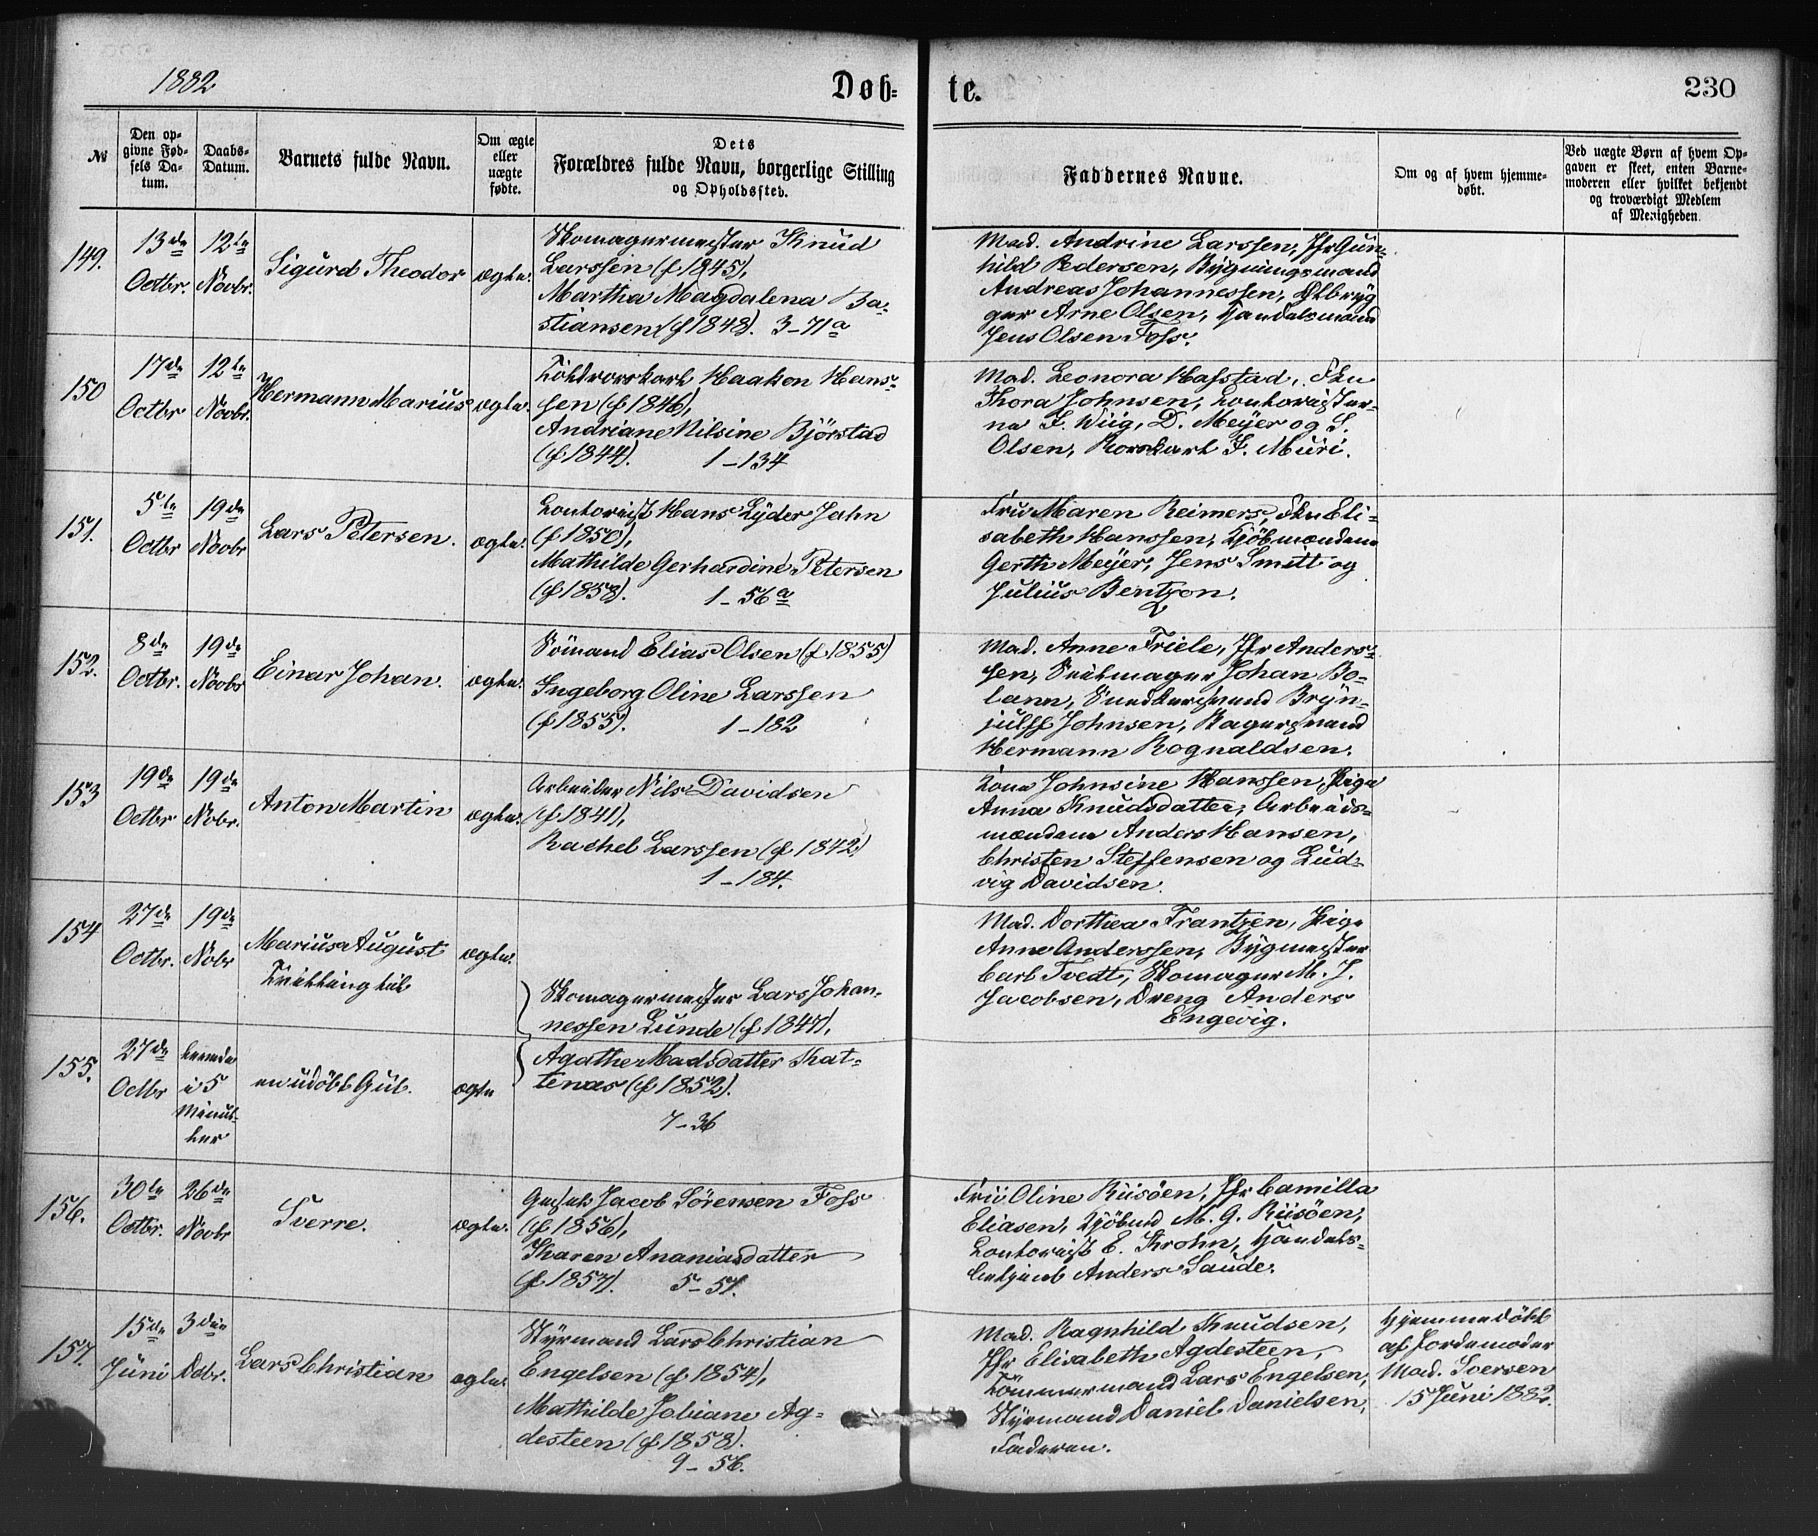 1882
Døb-
te.
230
№
Den op-
givne Fød-
sels Da-
tum.
Daabs-
Datum.
Barnets fulde Navn.
Om ægte
eller
uægte
fødte.
Dets
Forældres fulde Navn, borgerlige Stilling
og Opholdssted.
Faddernes Navne.
Om og af hvem hjemme-
døbt.
Ved uægte Børn af hvem Op-
gaven er skeet, enten Barne-
moderen eller hvilket bekjendt
og troværdigt Medlem
af Menigheden.
149.
13de
Octbr.
12te
Novbr.
Sigurd Theodor
ægte.
Skomagermester Knud
Larssen (f 1845),
Martha Magdalena Ba-
stiansen (f 1848). 3-71a
Mad. Andrine Larssen, Jfr Gun-
hild Pedersen, Bygningsmand
Andreas Johannessen, Ølbryg
ger Arne Olsen, Handelsmand
Jens Olsen Foss.
150
17de
Octbr
12te
Novbr.
Hermann Marius
ægte.
Haakon Hans-
sen (f 1846),
Andriane Nilsine Bjørstad
(f 1844). 1-134
Mad. Leonora Hafstad, Frk
Thora Johnsen, Contorister-
ne F. Wiig, D. Meyer og S.
Olsen, Rorskarl F. Muri.
151.
5te
Octbr
19de
Novbr
Lars Petersen.
ægte.
Contorist Hans Lyder Jahn
(f 1850),
Mathilde Gerhardine Petersen
(f 1858). 1-56a
Fru Maren Reimers, Frk Eli-
sabeth Hanssen, Kjöbmændene
Gerth Meyer, Jens Smitt og
Julius Bentzon.
152.
8de
Octbr.
19de
Novbr
Einar Johan.
ægte.
Sömand Elias Olsen (f 1855)
Ingeborg Oline Larssen
(f 1855). 1-182
Mad. Anne Friele, Jfr Anders-
sen, Seilmager Johan Bo-
lann, Snedkersvend Bryn-
julff Johnsen, Bagersvend
Hermann Rognaldsen.
153
19de
Octbr
19de
Nobr.
Anton Martin
ægte.
Arbeider Nils Davidsen
(f 1841),
Rachel Larssen (f 1842)
1-184.
Kone Johnsine Hanssen, Pige
Anna Knudsdatter, Arbeids-
mændene Anders Hansen,
Christen Steffensen og Lud-
vig Davidsen.
154
27de
Octbr.
19de
Nobr
Marius August
Tvilling til
ægte.
Skomagermester Lars Johan-
nessen Lunde (f 1847),
Mad. Dorthea Frantzen, Pige
Anne Anderssen, Bygmester
Carl Tvedt, Skomager M. J.
Jacobsen, Dreng Anders
Engevig.
155.
27de
Octbr
levede
i 5
Minut-
ter
en udöbt Gut.
ægte
Agathe Madsdatter Kat-
tenæs (f 1852).
7-36
156.
30te
Octbr.
26de
Novbr
Sverre.
ægte.
Jacob Sörensen Foss
(f 1856),
Karen Ananiasdatter
(f 1857). 5-57.
Fru Oline Riisöen, Jfr Camilla
Eliasen, Kjöbmd M. G. Riisöen,
Contorist E. Krohn, Handels-
betjent Anders Saude.
157.
15de
Juni
3die
Dcbr.
Lars Christian
ægte.
Styrmand Lars Christian
Engelsen (f 1854),
Mathilde Jobiane Ag-
desteen (f 1858).
9-56.
Mad. Ragnhild Knudsen,
Jfr Elisabeth Agdesteen,
Tömmermand Lars Engelsen,
Styrmand Daniel Danielsen,
Faderen.
Hjemmedöbt
af Jordemoder
Mad. Soersen
15 Juni 1882.